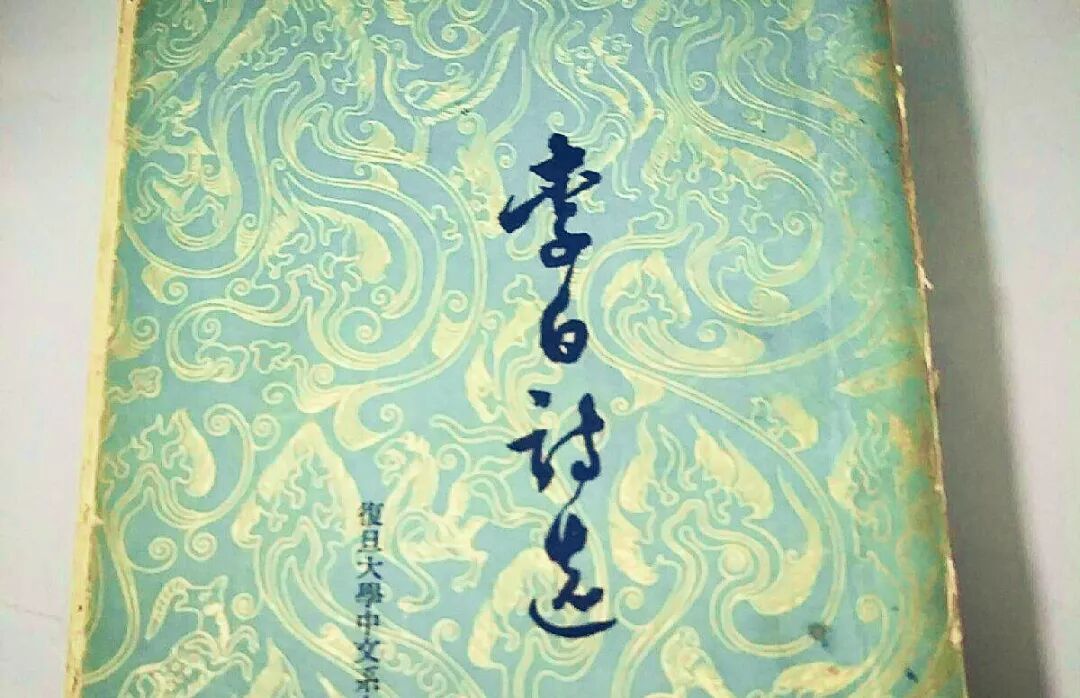 李白詩选
復旦大學中文系